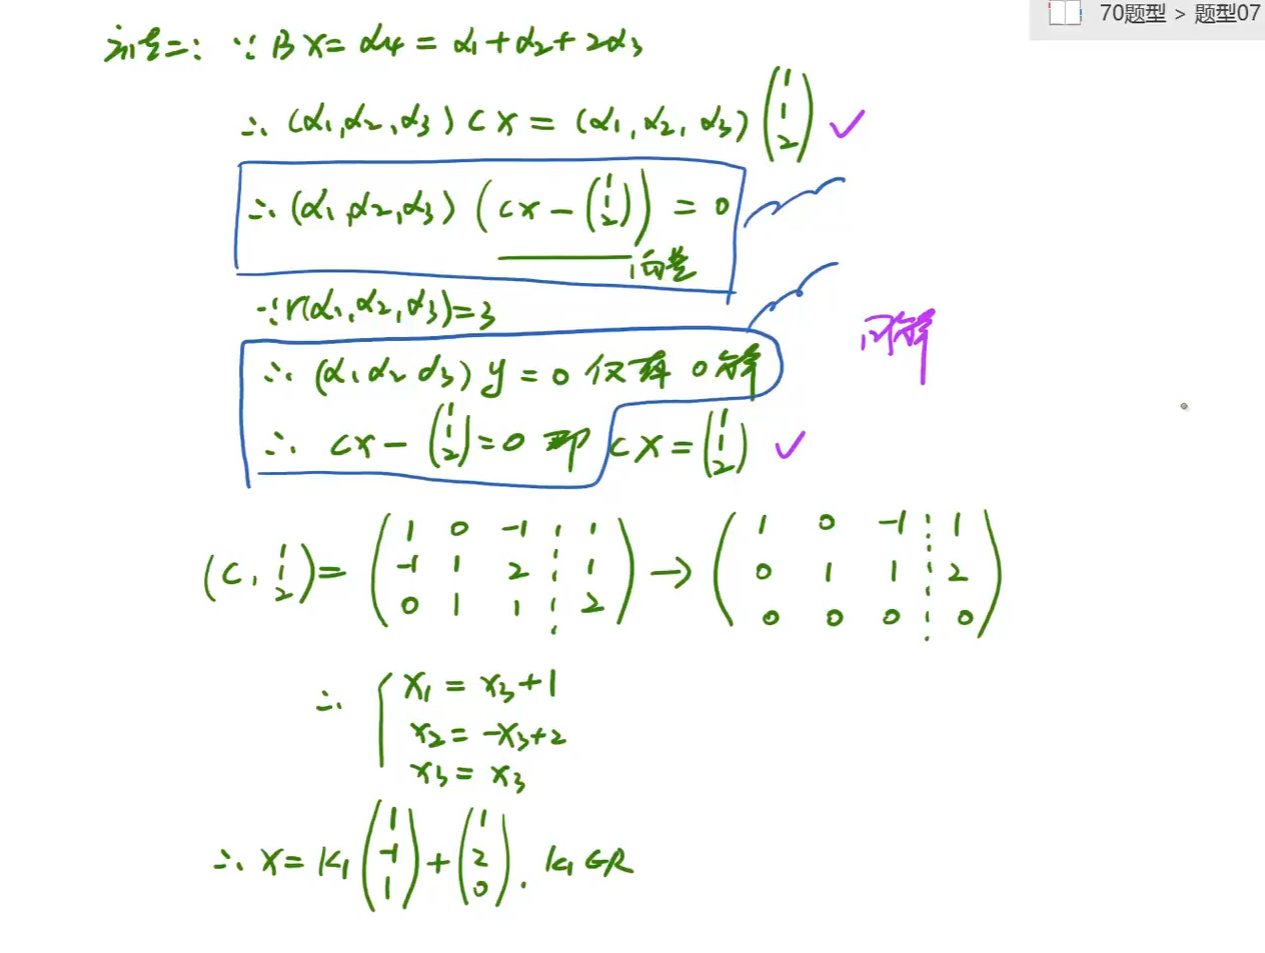 70题型 > 题型07
方法二: ∵ BX = α4 = α1 + α2 + 2α3
∴ (α1, α2, α3) CX = (α1, α2, α3) (1 1 2) ✓
∴ (α1, α2, α3) (CX − (1 1 2)) = 0
向量
∵ r(α1, α2, α3) = 3
同解
∴ (α1 α2 α3) y = 0 仅有 0解
∴ CX − (1 1 2) = 0 即 CX = (1 1 2) ✓
(C, 1 1 2) = ( 1 0 -1 ⋮ 1 → ( 1 0 -1 ⋮ 1
-1 1 2 ⋮ 1 0 1 1 ⋮ 2
0 1 1 ⋮ 2 ) 0 0 0 ⋮ 0 )
∴ { x1 = x3 + 1
x2 = -x3 + 2
x3 = x3
∴ X = k1 (1 -1 1) + (1 2 0). k1 ∈ R